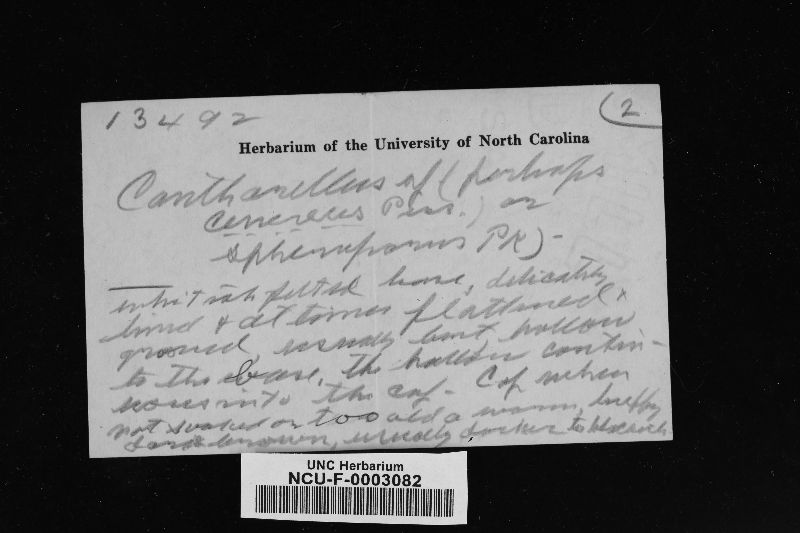 13492
(2
Herbarium of the University of North Carolina
Cantharellus sp (perhaps
cinereus Pers.) or
Pk) -
whitish felted base, delicately
lined & at times flattened &
grooved usually bent, hollow
to the base, the hollow contin-
uous into the cap - Cap when
not soaked or too old a warm, snuffy
dark brown, usually darker to blackish
UNC Herbarium
NCU-F-0003082